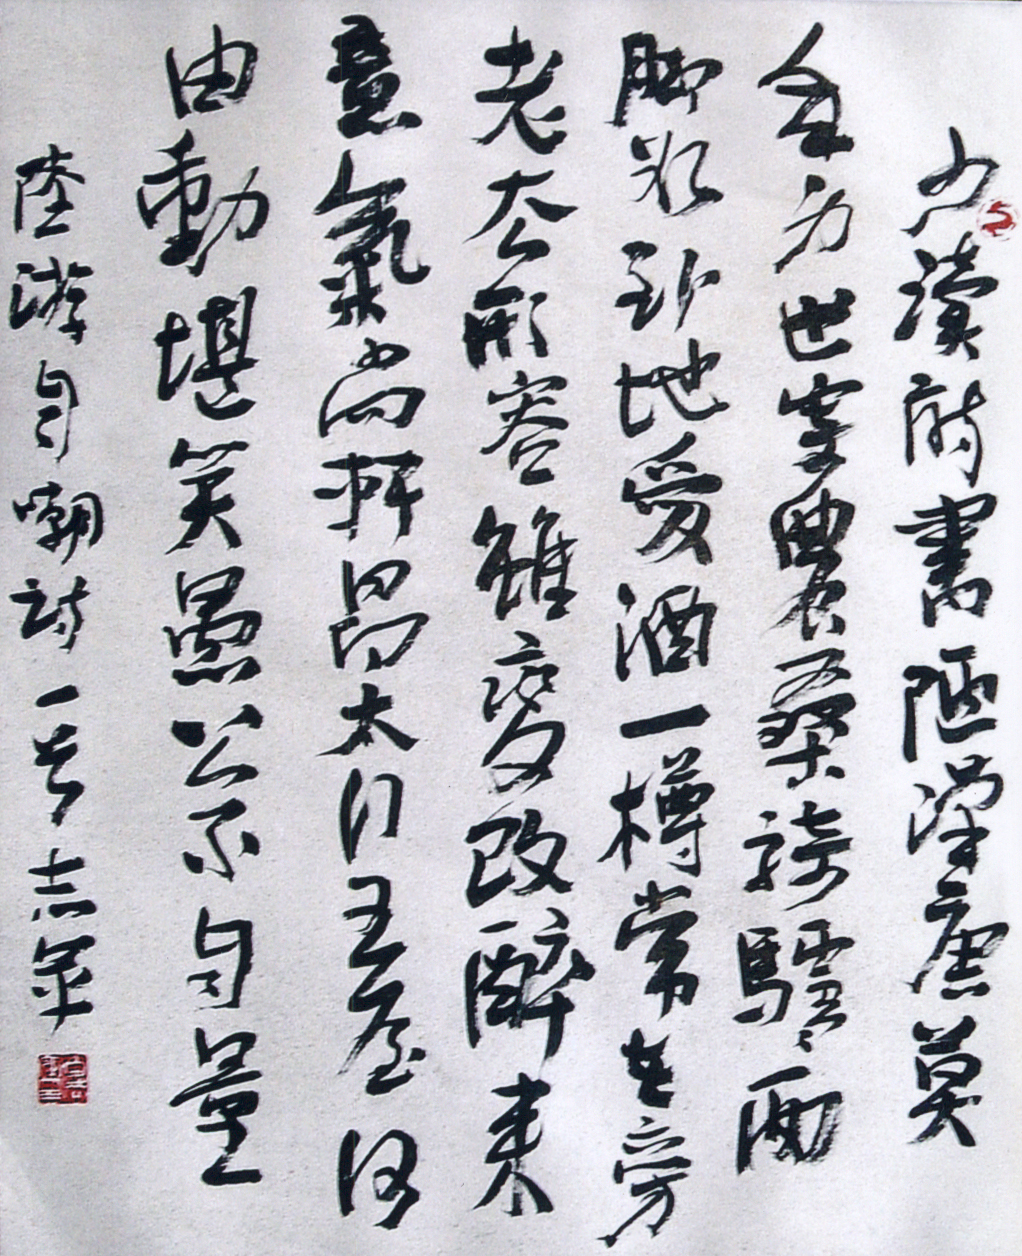 少讀詩書陋漢唐莫
年身世寄農桑騎驢兩
脚欲到地愛酒一樽常在旁
老去形容雖變改醉來
意氣尚軒昂太行王屋何
由動堪笑愚公不自量
陸游自嘲詩一首志